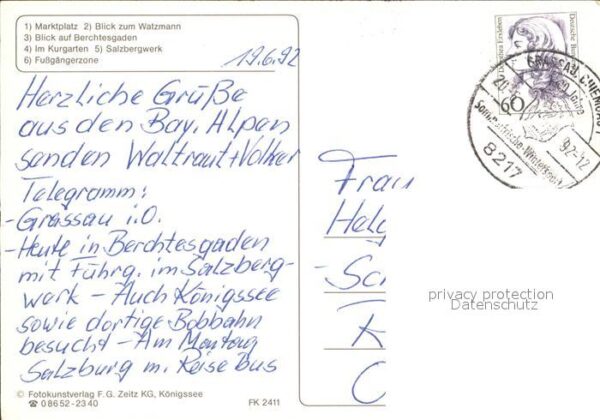 1) Marktplatz 2) Blick zum Watzmann
3) Blick auf Berchtesgaden
4) Im Kurgarten 5) Salzbergwerk
6) Fußgängerzone
19.6.92
Herzliche Grüße
aus den Bay. Alpen
senden Waltraut + Volker
Telegramm:
- Grassau i.O.
- Heute in Berchtesgaden
mit Führg. im Salzberg-
werk - Auch Königssee
sowie dortige Bobbahn
besucht - Am Montag
Salzburg m. Reise Bus
© Fotokunstverlag F. G. Zeitz KG, Königssee
☎ 0 86 52 - 23 40
FK 2411
Deutsche Bun
60
GRASSAU, CHIEMGAU
92-12
8217
Frau
Helg
- Sc
K
C
privacy protection
Datenschutz